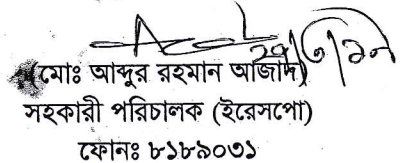 (মোঃ আব্দুর রহমান আজাদ)
সহকারী পরিচালক (ইরেসপো)
ফোনঃ ৮১৮৯০৩১